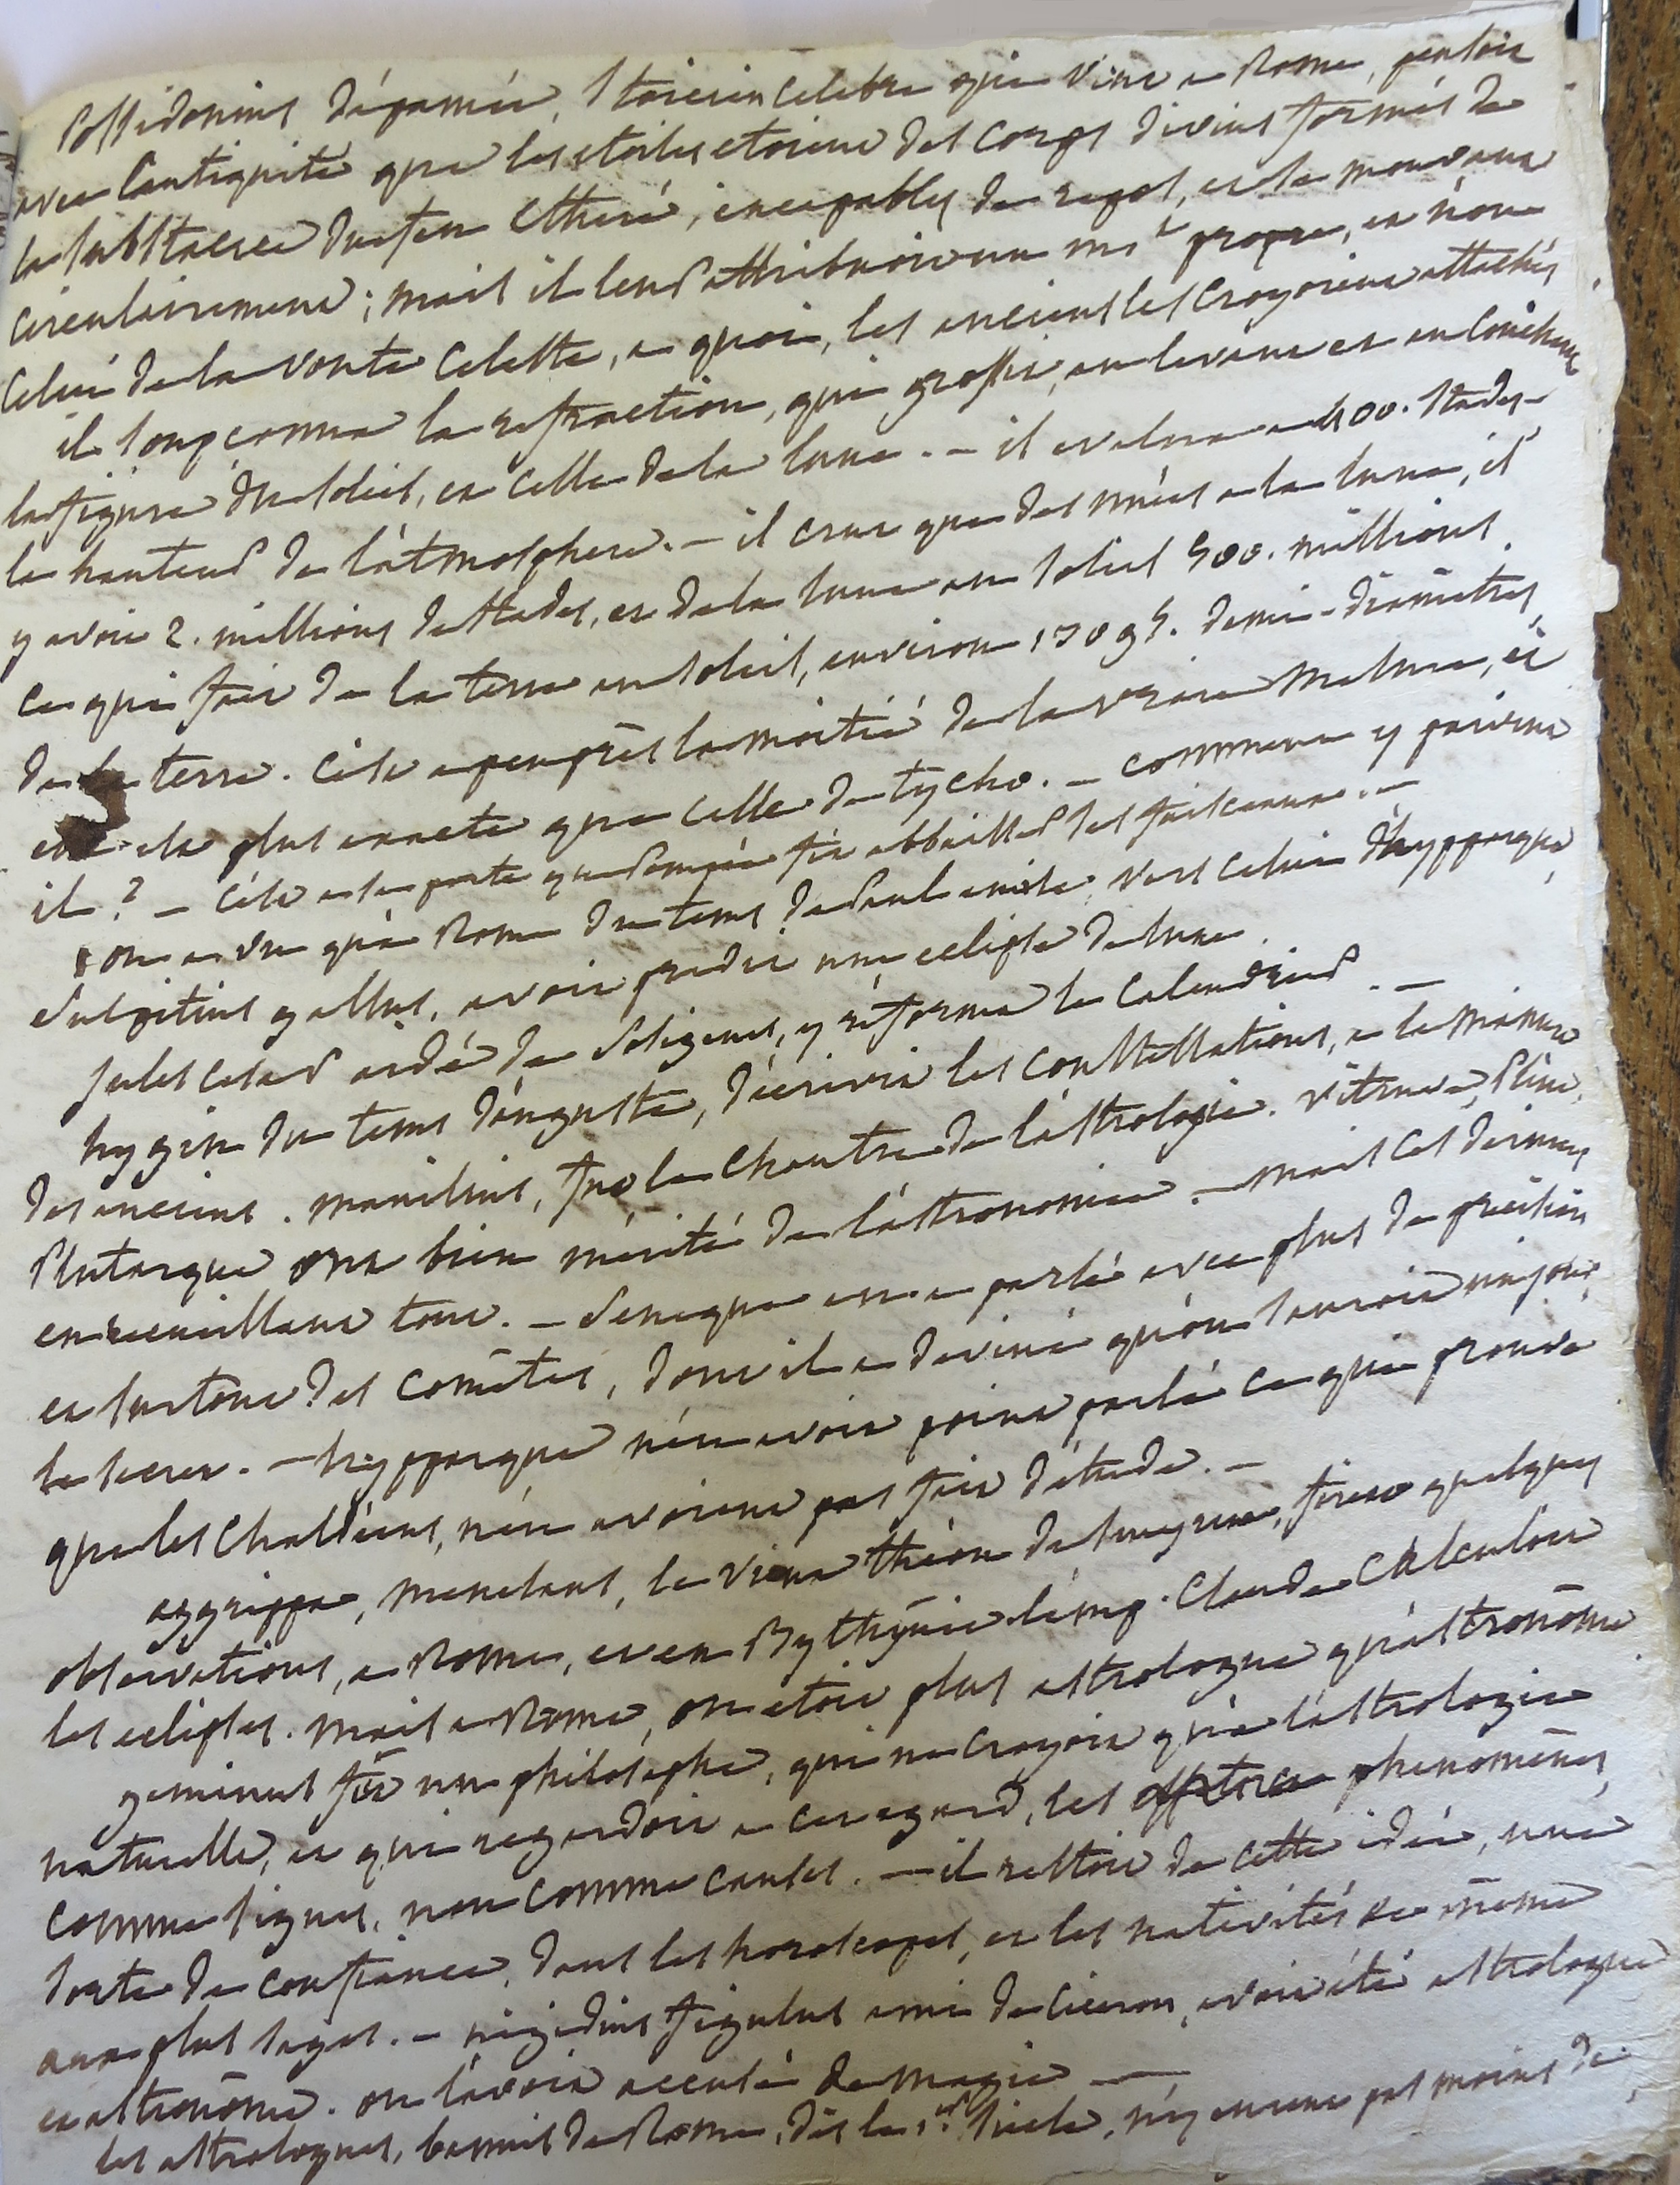 Possidonius d'apamée, stoicien celebre qui vint a Rome, pensoit
avec l'antiquité que les etoiles etoient des corps divins formés de
la substance du feu etheré, incapables de repos, et se mouvant
circulairement ; mais il leur attribuoit un mt propre, et non
celui de la voute celeste, a quoi, les anciens les croyoient attachés
il soupconna la refraction, qui grossit, au levant et au couchant
la figure du soleil, et celle de la lune. — il evalua a 400. stades
la hauteur de l'atmosphere. — il crut que des nuées a la lune, il
y avoit 2. millions de stades, et de la lune au soleil 500. millions.
ce qui fait de la terre au soleil, environ 13095. demi-diamètres
de la terre. c'est a peu près la moitié de la vraie mesure, et
elle est plus exacte que celle de tycho. — comment y parvint
il ? — c'est a sa porte que Pompée fit abbaisser ses faisceaux. —
on a vu qu'a Rome du tems de Paul emile, vers celui d'hypparque,
Sulpitius gallus, avoit predit une eclipse de lune.
Jules Cesar aidé de Sosigenes, y réforma le calendrier. —
hygin du tems d'auguste, décrivit les constellations, a la maniere
des anciens. manilius, fut le chantre de l'astrologie. Vitruve, Pline,
Plutarque ont bien mérité de l'astronomie. — mais ces derniers
en recueillant tout. — Seneque en a parlé avec plus de précision
et surtout des comètes, dont il a deviné qu'on sauroit un jour
le secret. — hypparque n'en avoit point parlé ce qui prouve
que les Chaldéens, n'en avoient pas fait d'étude. —
aggrippa, menelaus, le vieux théon de smyrne, firent quelques
observations, a Rome, et en Bythynie. l'emp. Claude calculoit
les eclipses. mais a Rome, on etoit plus astrologue qu'astronôme
geminus fût un philosophe, qui ne croyoit qu'a l'astrologie
naturelle, et qui regardoit a cet egard, les phenomènes,
comme signes, non comme causes. — il restoit de cette idée, une
sorte de confiance, dans les horoscopes, et les nativités meme
aux plus sages. — nigidius figulus ami de Ciceron, avoit été astrologue
et astronôme. on l'avoit accusé de magie —
les astrologues, bannis de Rome, dès le 1er. siecle, n'y eurent pas moins de